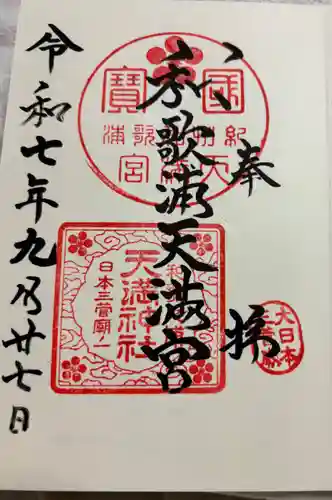 奉拝
和歌浦天満宮
令和七年九月廿七日
國寶
紀州和歌浦
天満宮
天満神社
日本三菅廟ノ一
大日本